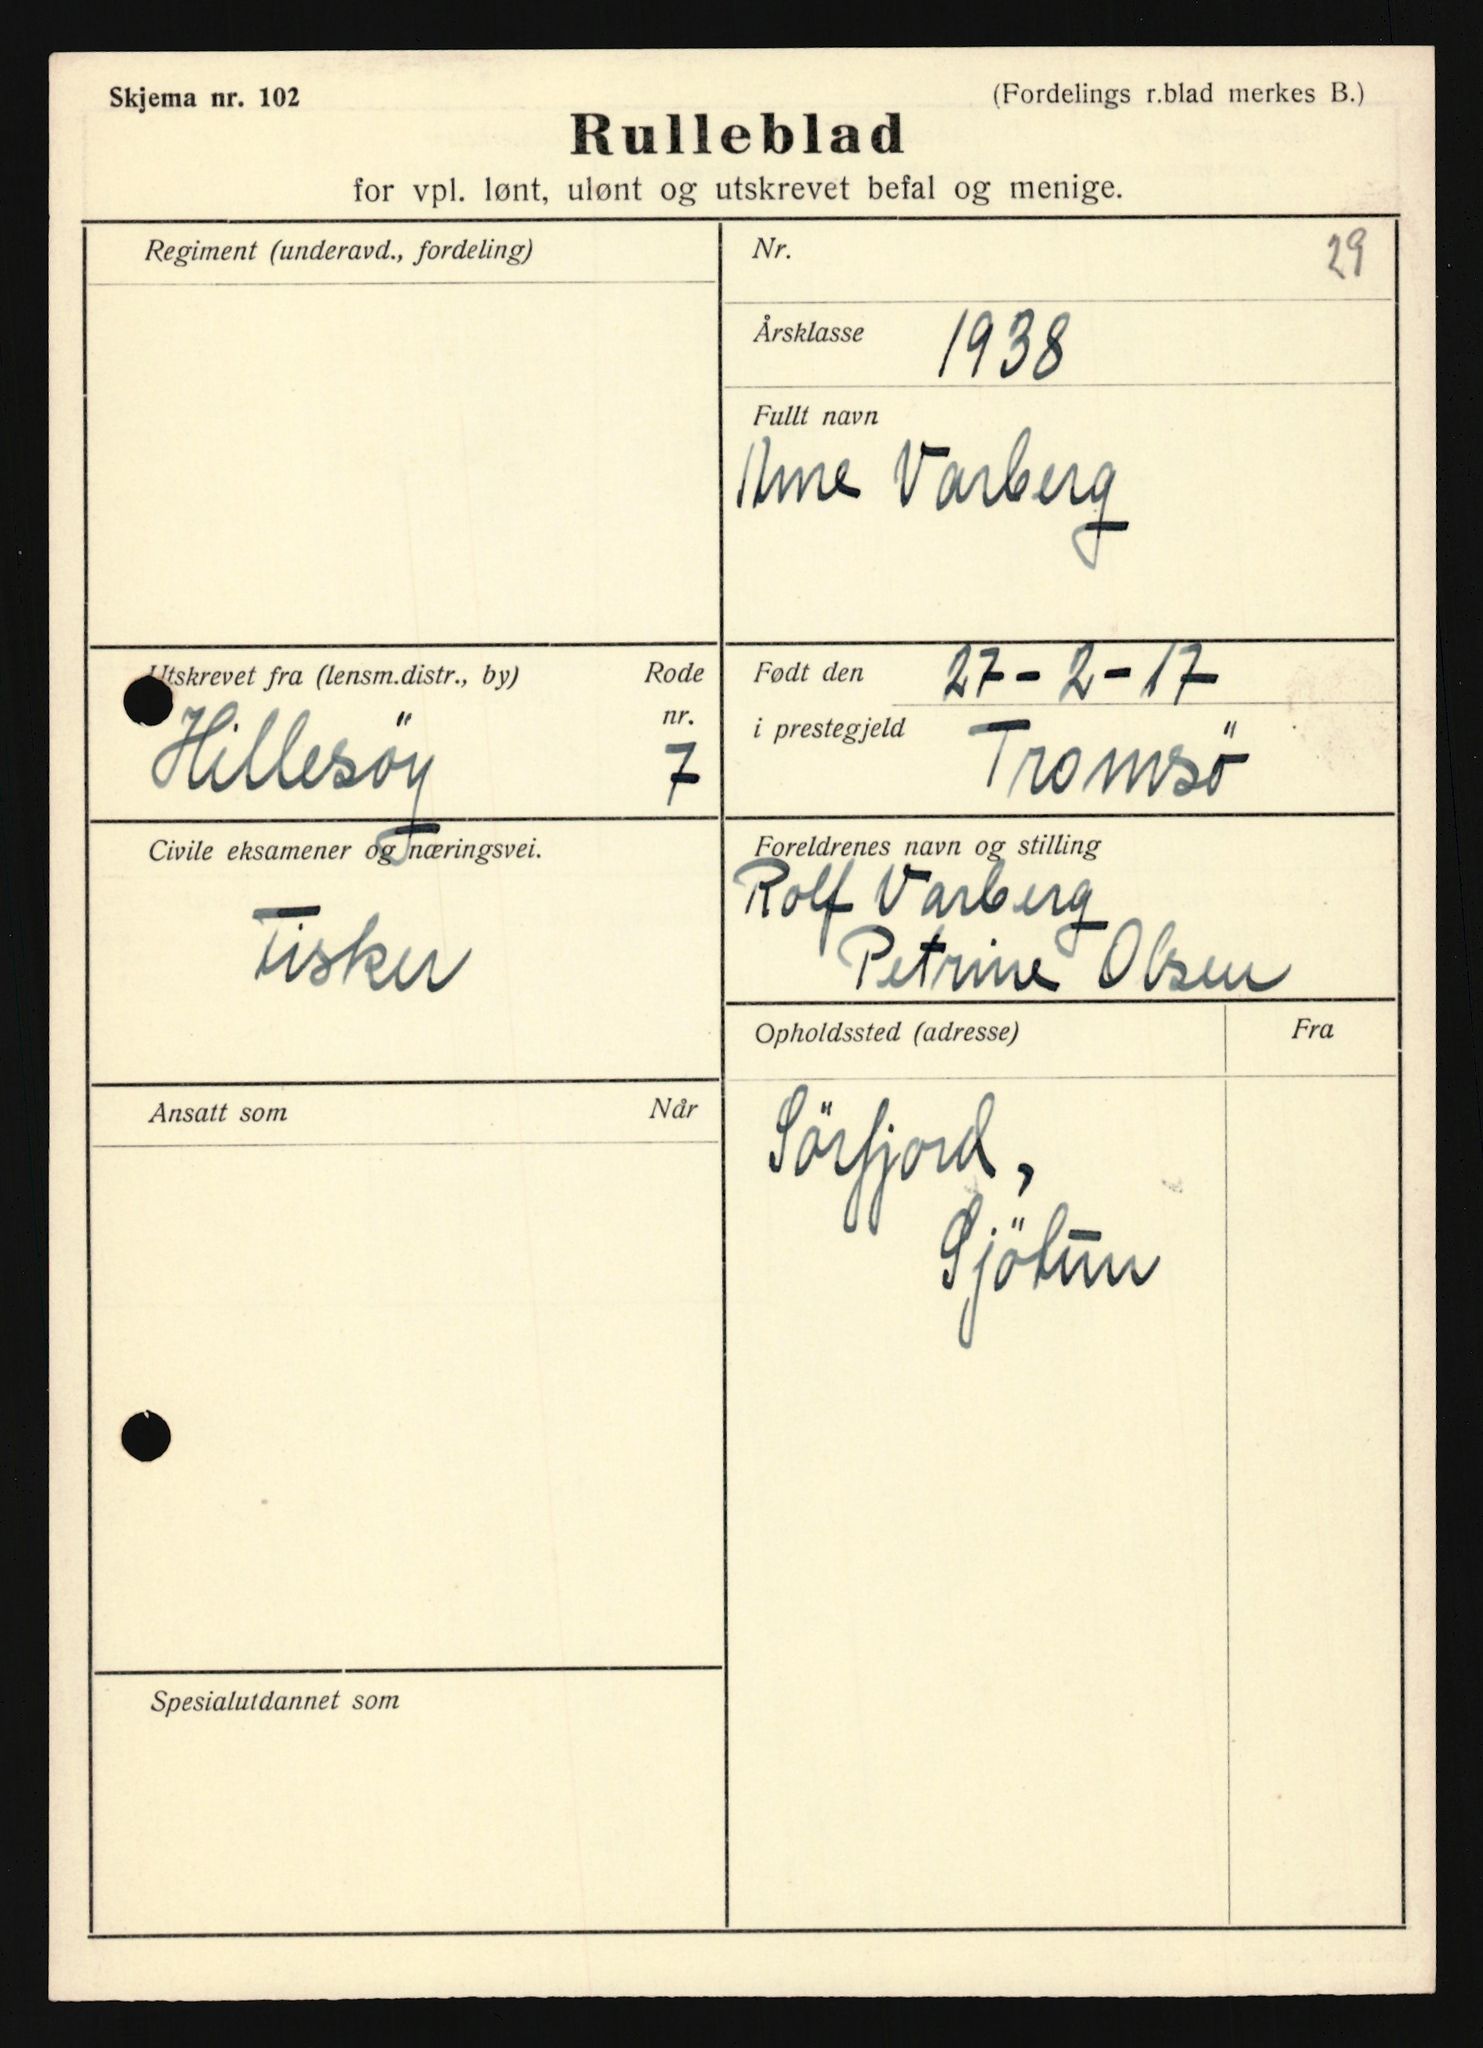 Skjema nr. 102
(Fordelings r.blad merkes B.)
Rulleblad
for vpl. lønt, ulønt og utskrevet befal og menige.
Regiment (underavd., fordeling)
Nr.
29
Årsklasse 1938
Fullt navn
Arne Varberg
Utskrevet fra (lensm.distr., by)
Rode
nr.
Hillesöy
7
Født den 27-2-17
i prestegjeld Tromsö
Civile eksamener og næringsvei.
Fisker
Foreldrenes navn og stilling
Rolf Varberg
Petrine Olsen
Opholdssted (adresse)
Fra
Sörfjord,
Sjötun
Ansatt som
Når
Spesialutdannet som